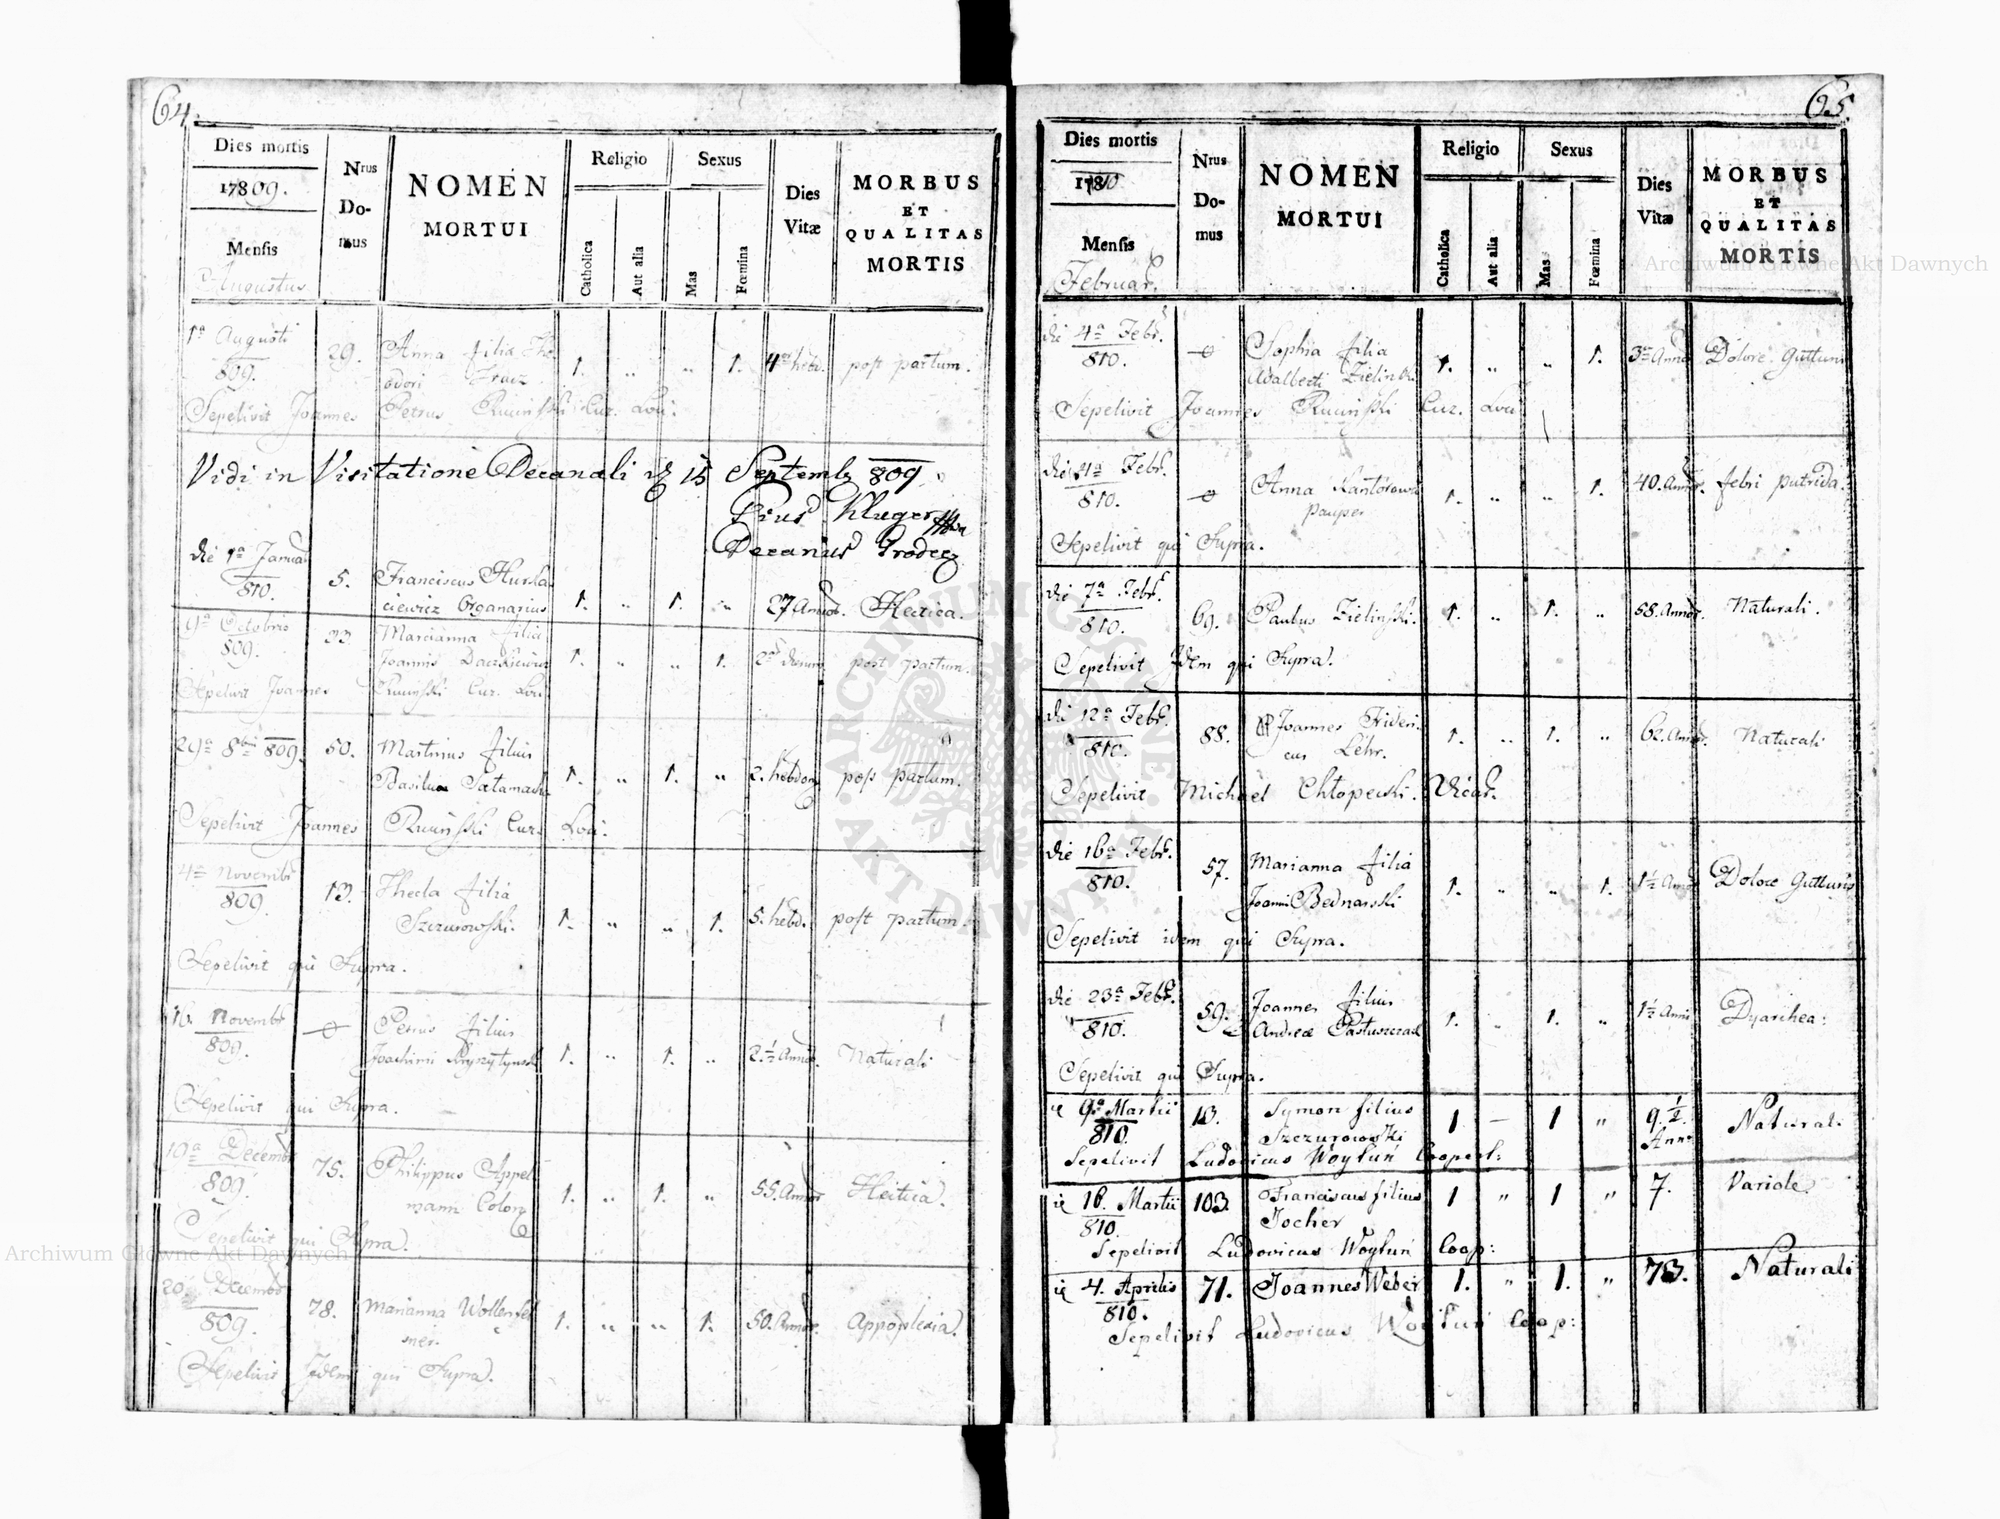 64.
Dies mortis
17809.
Mensis
Augustus
Nrus
Do-
mus
NOMEN
MORTUI
Religio
Catholica
Aut alia
Sexus
Mas
Fœmina
Dies
Vitæ
MORBUS
ET
QUALITAS
MORTIS
1a Augusti
809.
29.
Anna filia Theo
dori
1. „ „ 1.
post partum.
Sepelivit Joannes Petrus Cur. Loci.
Vidi in Visitatione Decanali 15 Septemb 809
Pius Kluger
Decanus Grodec
die 1a Januar
810.
5.
Franciscus
Organarius
1. „ 1. „
27 Annor. Hectica.
9a Octobris
809.
23.
Marianna filia
Joannis
1. „ „ 1.
2 dierum post partum.
Sepelivit Joannes Cur. Loci
29a 8bris 809.
50.
Martinus filius
Basilii
1. „ 1. „
2. hebdom post partum.
Sepelivit Joannes Cur. Loci.
4a Novembr
809.
13.
Thecla filia
Szczurowski.
1. „ „ 1.
5. hebd. post partum.
Sepelivit qui Supra.
16. Novembr
809.
Petrus filius
Joachimi
1. „ 1. „
2. ½ Annor. Naturali
Sepelivit qui Supra.
10a Decembr
809.
75.
Philippus Appel
mann Colon
1. „ 1. „
55. Annor Hectica.
Sepelivit qui Supra.
20. Decembr
809.
78.
Marianna
1. „ „ 1.
50. Annor. Appoplexia.
Sepelivit Idem qui Supra.
65.
Dies mortis
Mensis
Februar.
Nrus
Do-
mus
NOMEN
MORTUI
Religio
Catholica
Aut alia
Sexus
Mas
Fœmina
Dies
Vitæ
MORBUS
ET
QUALITAS
MORTIS
die 4a Febr.
810.
Sophia filia
Adalberti Zielinski
1. „ „ 1.
Dolore Gutturis
Sepelivit Joannes Cur. Loci
Febr.
810.
Anna
Pauper
1. „ „ 1.
40. Annor. febri putrida.
Sepelivit qui Supra.
die 7a Febr.
810.
69.
Paulus Zielinski.
1. „ 1. „
58. Annor. Naturali.
Sepelivit Idem qui Supra.
die 12a Febr.
810.
88.
Joannes Frideri
cus Lehr.
1. „ 1. „
62. Annor. Naturali
Sepelivit Michael Chłopecki. Vicar.
die 16a Febr.
810.
57.
Marianna filia
Joanni Bednarski
1. „ „ 1.
1½ Annor Dolore Gutturis
Sepelivit idem qui Supra.
die 23a Febr.
810.
59.
Joannes filius
Andreæ Pastuszczak
1. „ 1. „
1½ Anni Dyarrhea.
Sepelivit qui Supra.
9a Martii
810.
13.
Symon filius
Szczurowski
1 – 1 „
9.½
Ann.
Naturali
Sepelivit Ludovicus Woytuń Cooperat:
16. Martii
810.
103.
Franciscus filius
Jocher
1 „ 1 „
7. Variole
Sepelivit Ludovicus Woytuń Coop:
4. Aprilis
810.
71.
Joannes Weber
1. „ 1. „
73. Naturali
Sepelivit Ludovicus Woytuń Coop:
ARCHIWUM GŁÓWNE AKT DAWNYCH
Archiwum Główne Akt Dawnych
Archiwum Główne Akt Dawnych